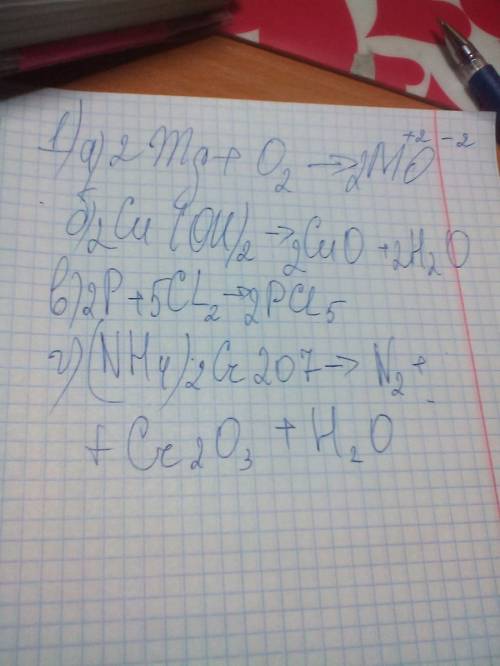 1) а) 2Mg + O₂ → 2MO⁺²⁻²
б) 2Cu(OH)₂ → 2CuO + 2H₂O
в) 2P + 5CL₂ → 2PCl₅
г) (NH4)2Cr2O7 → N₂ +
+ Cr₂O₃ + H₂O